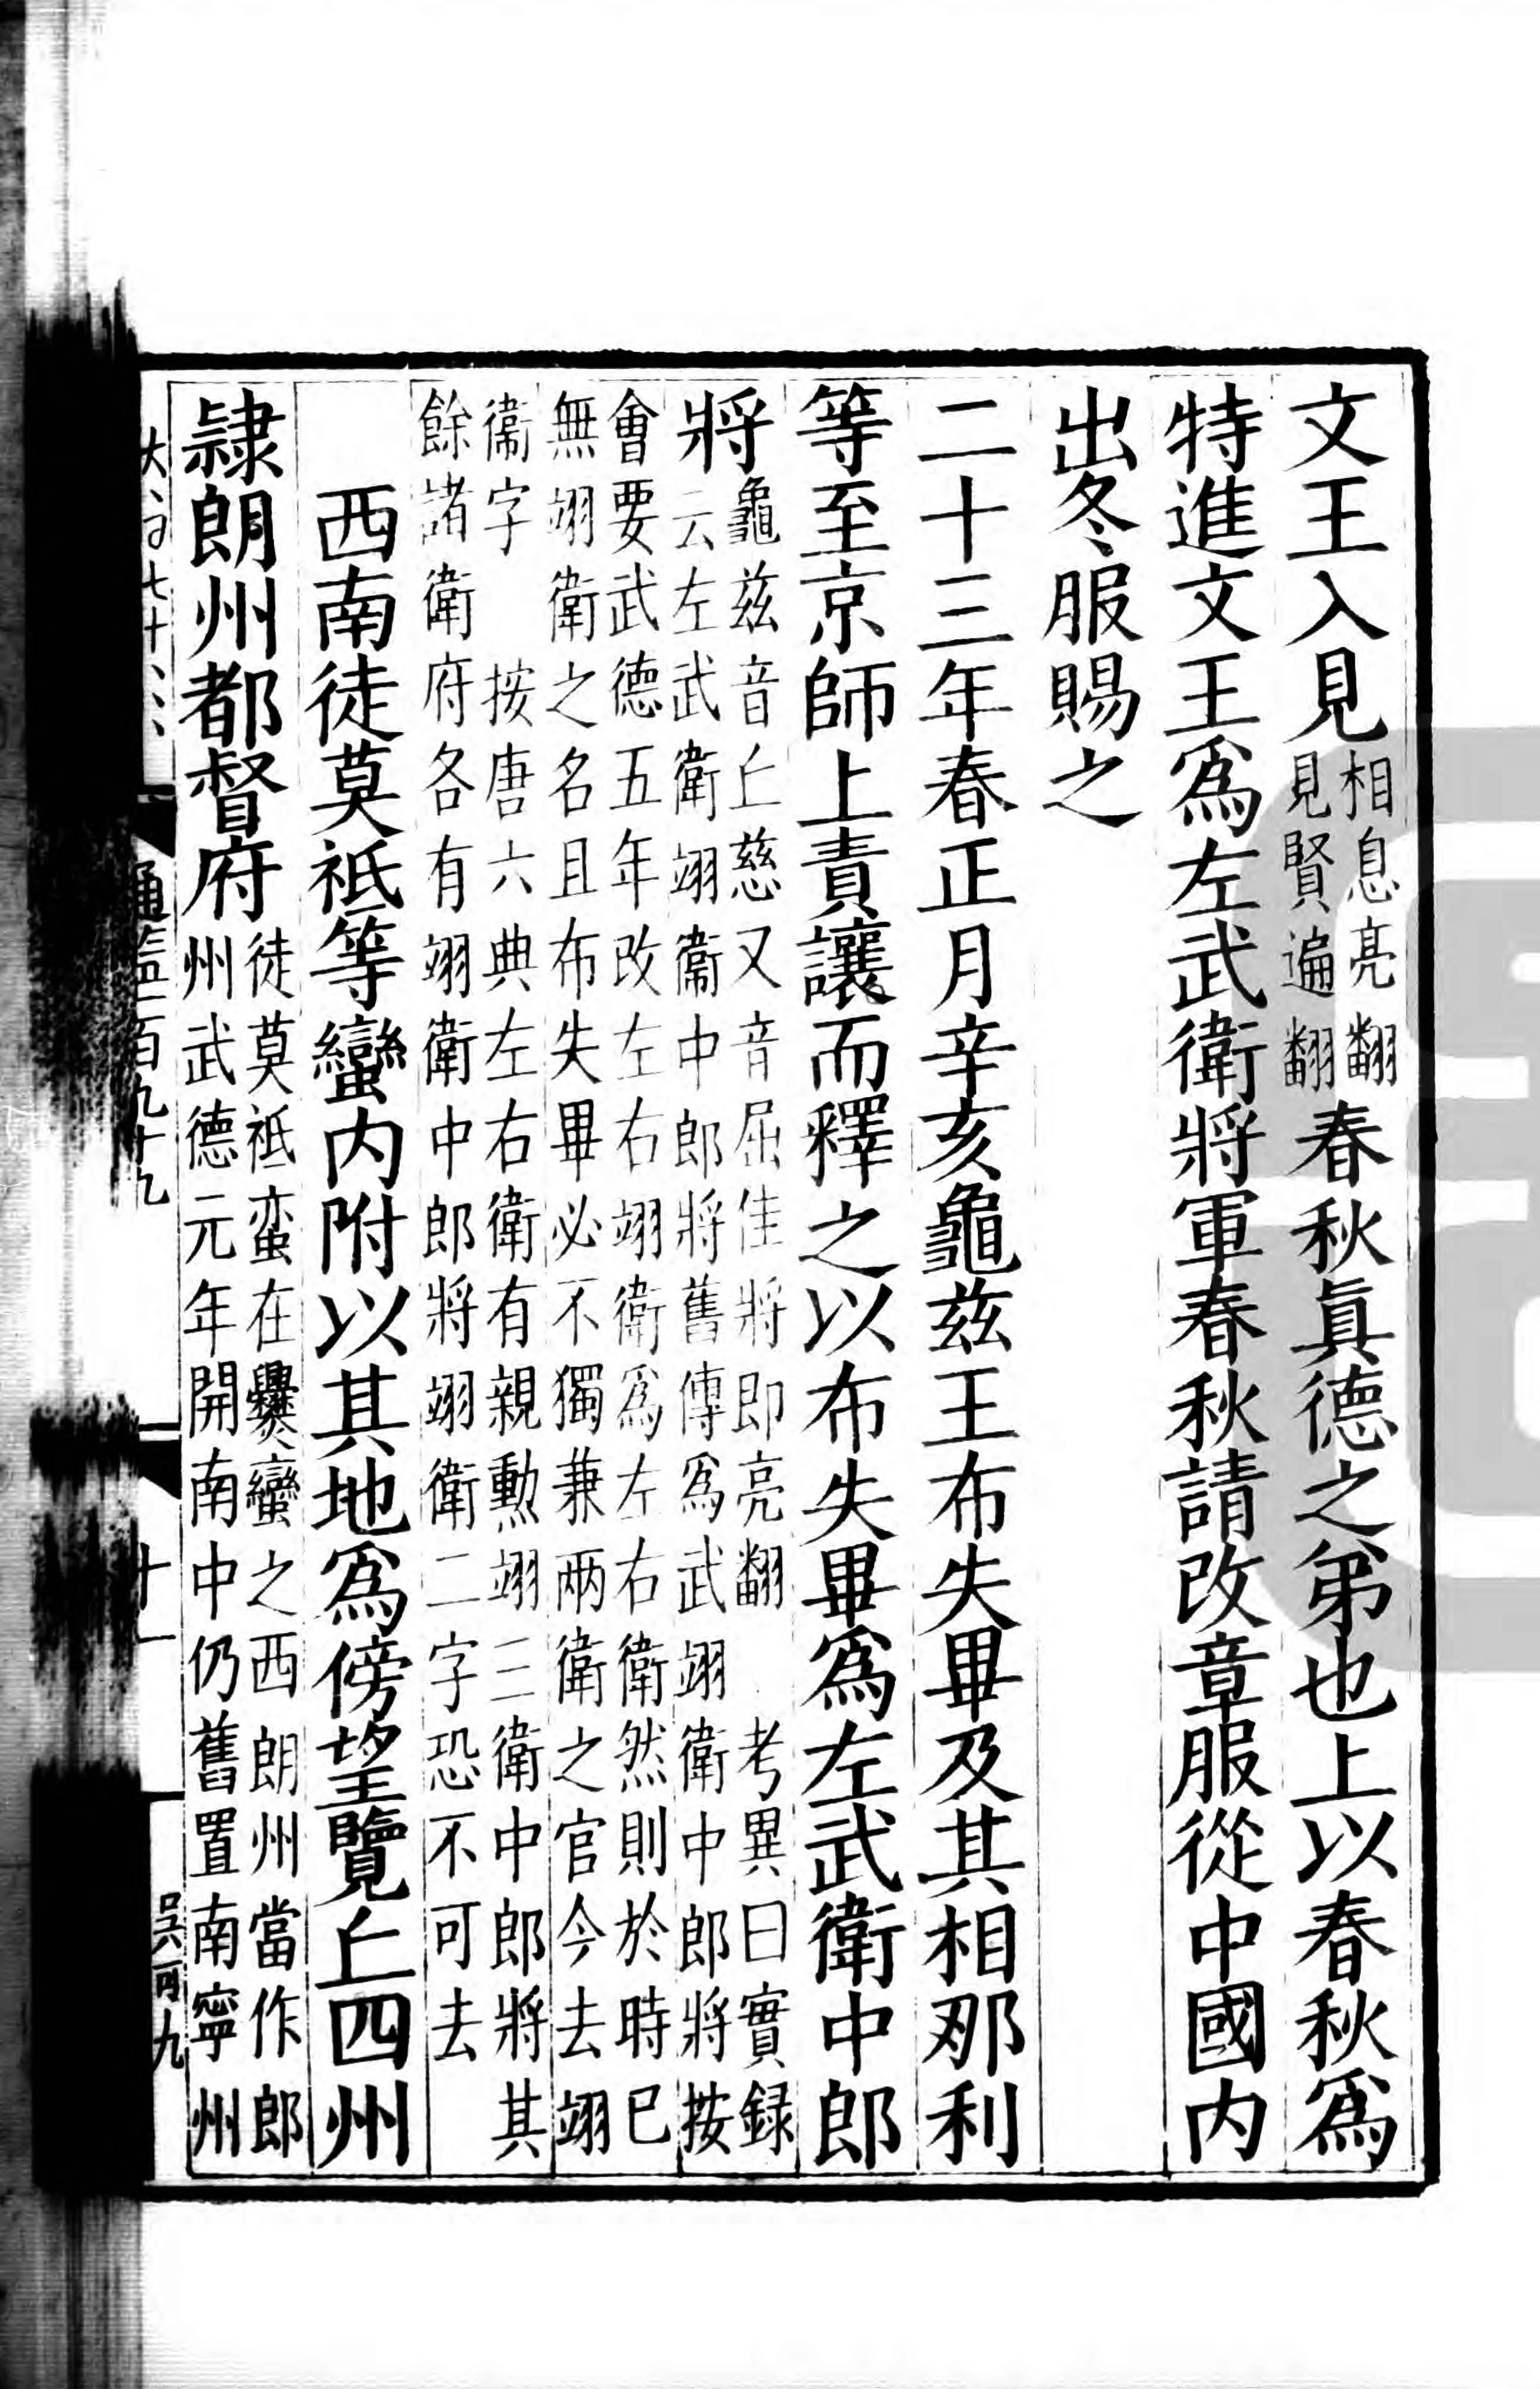 文王入見相息亮翻見賢遍翻春秋眞德之弟也上以春秋爲
特進文王爲左武衛將軍春秋請改章服從中國内
出冬服賜之
二十三年春正月辛亥龜茲王布失畢及其相那利
等至京師上責讓而釋之以布失畢爲左武衛中郎
將龜茲音丘慈又音屈佳將即亮翻　考異曰實録
云左武衛翊衞中郎將舊傳爲武翊衛中郎將按
會要武德五年改左右翊衞爲左右衛然則於時已
無翊衛之名且布失畢必不獨兼兩衛之官今去翊
衞字　按唐六典左右衛有親勳翊三衛中郎將其
餘諸衛府各有翊衛中郎將翊衛二字恐不可去
西南徒莫祗等蠻内附以其地爲傍望覽丘四州
隷朗州都督府徒莫祗蛮在爨蠻之西朗州當作郎
州武德元年開南中仍舊置南寧州
通鑑一百九十九
十一